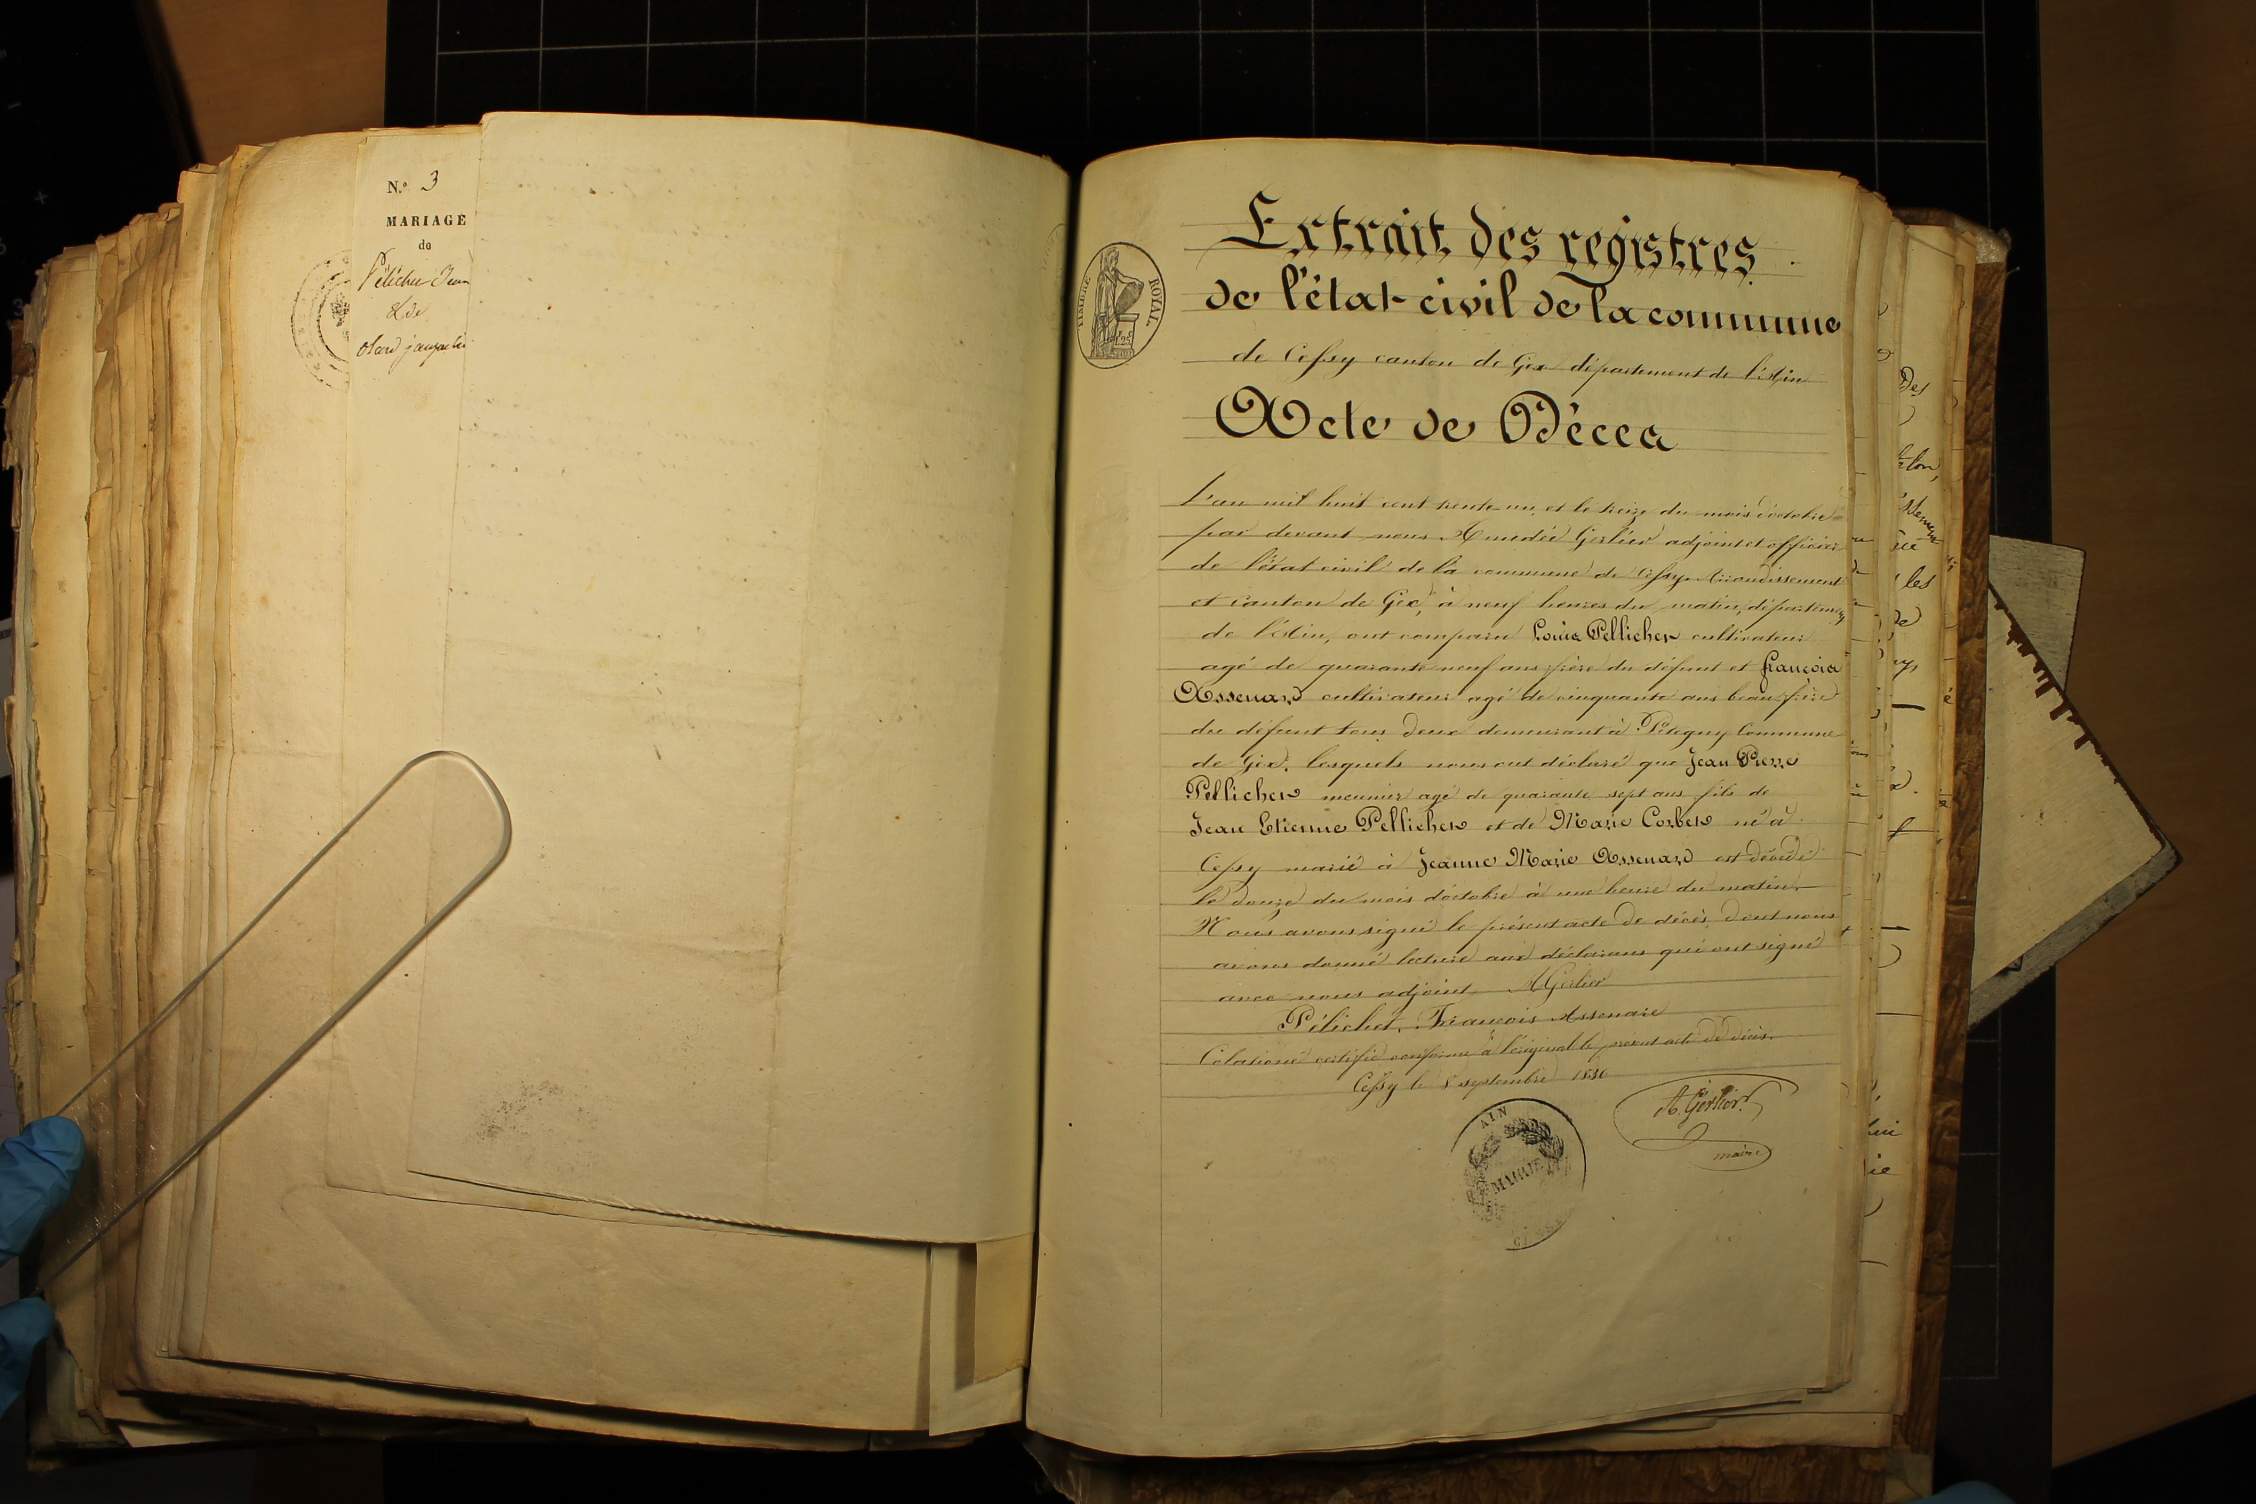 N.º 3
MARIAGE
de
Pélichet Jean
& de
jacqueline
TIMBRE ROYAL
1.25
Extrait des registres
de l'état-civil de la commune
de Cessy canton de Gex département de l'Ain
Acte de Décea
L'an mil huit cent trente-un, et le treize du mois d'octobre
par devant nous Amédée Gerlier adjoint et officier
de l'état civil de la commune de Cessy Arrondissement
et canton de Gex, à neuf heures du matin, départem
de l'Ain, ont comparu Louis Pellicher cultivateur
agé de quarante neuf ans frère du défunt et françois
Assenard cultivateur agé de cinquante ans beau-frère
du défunt tous deux demeurant à Pitegny Commune
de Gex. lesquels nous ont déclaré que Jean Pierre
Pellicher meunier agé de quarante sept ans fils de
Jean Etienne Pellicher et de Marie Corber né à
Cessy marié à Jeanne Marie Assenard est décédé
le douze du mois d'octobre à une heure du matin.
Nous avons signé le présent acte de décès dont nous
avons donné lecture aux déclarans qui ont signé
avec nous adjoint A Gerlier
Pélichet, François Assenare
Colationé certifié conforme à l'original le present acte de décès.
Cessy le 8 septembre 1836
A. Gerlier
maire
AIN
MAIRIE